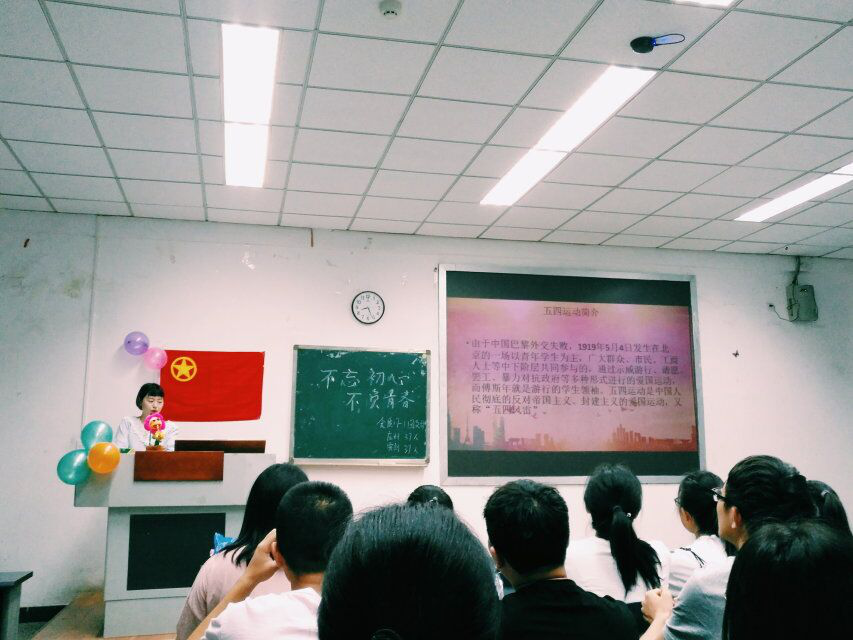 不忘初心
不负青春
应到 37人
实到 37人
五四运动简介
由于中国巴黎外交失败，1919年5月4日发生在北
京的一场以青年学生为主，广大群众、市民、工商
人士等中下阶层共同参与的，通过示威游行、请愿、
罢工、暴力对抗政府等多种形式进行的爱国运动，
而傅斯年就是游行的学生领袖。五四运动是中国人
民彻底的反对帝国主义、封建主义的爱国运动，又
称“五四风雷”